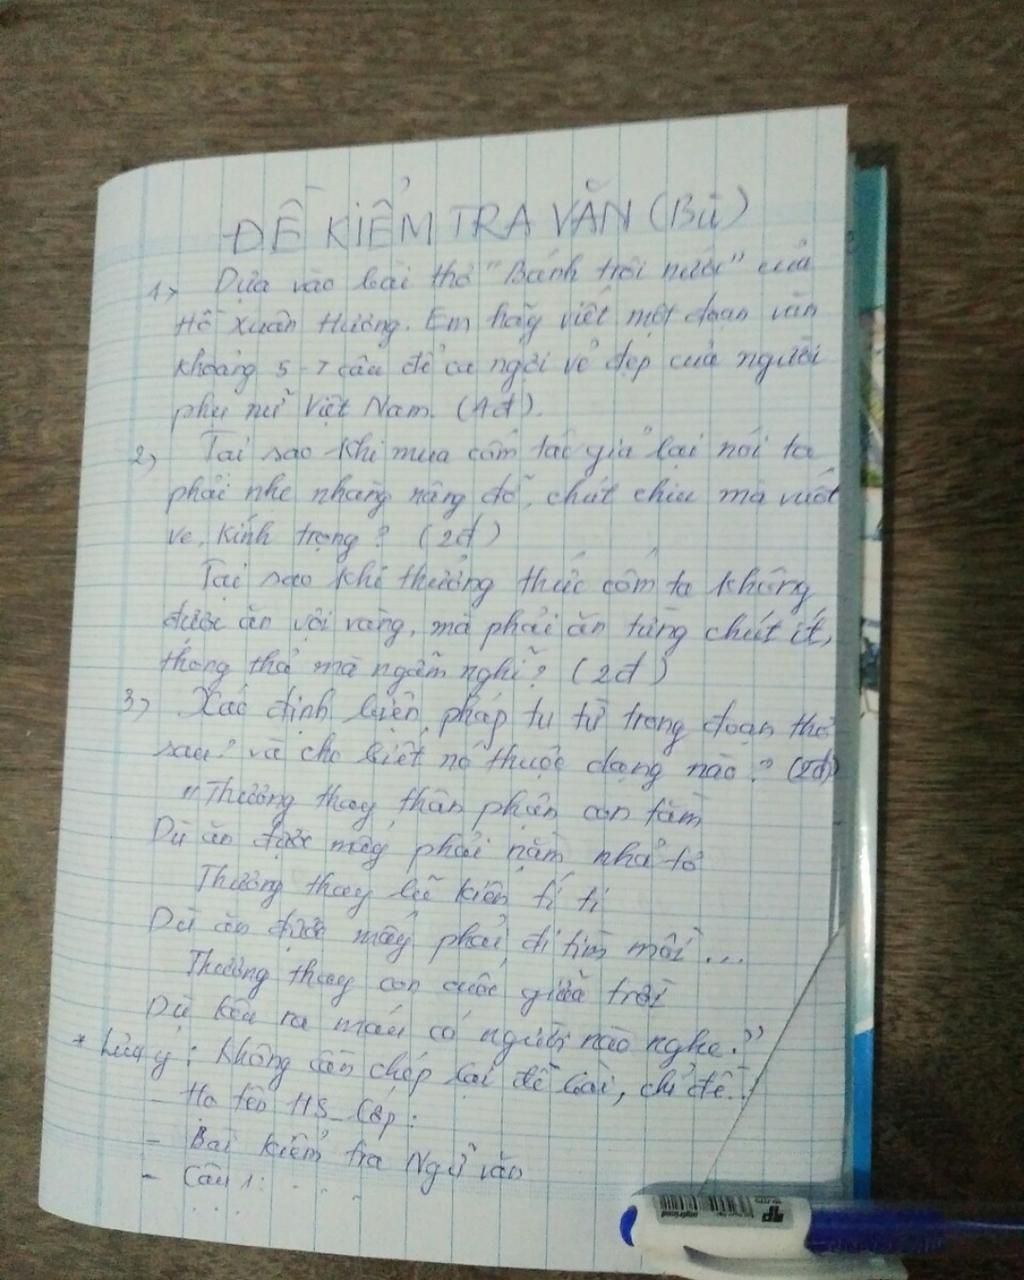 ĐỀ KIỂM TRA VĂN (Bù)
1> Dựa vào bài thơ "Bánh trôi nước" của
Hồ Xuân Hương. Em hãy viết một đoạn văn
khoảng 5-7 câu để ca ngợi vẻ đẹp của người
phụ nữ Việt Nam. (4đ).
2> Tại sao khi mua cốm tác giả lại nói ta
phải nhẹ nhàng nâng đỡ, chút chiu mà vuốt
ve, kính trọng? (2đ)
Tại sao khi thưởng thức cốm ta không
được ăn vội vàng, mà phải ăn từng chút ít,
thong thả mà ngẫm nghĩ? (2đ)
3> Xác định biện pháp tu từ trong đoạn thơ
sau? và cho biết nó thuộc dạng nào? (2đ)
"Thương thay thân phận con tằm
Dù ăn được mấy phải nằm nhả tơ
Thương thay lũ kiến tí ti
Dù ăn được mấy phải đi tìm mồi...
Thương thay con cuốc giữa trời
Dù kêu ra máu có người nào nghe."
* Lưu ý: Không cần chép lại đề bài, chỉ đề:
- Họ tên HS_Lớp:
- Bài kiểm tra Ngữ văn
- Câu 1: . . . .
. . . .